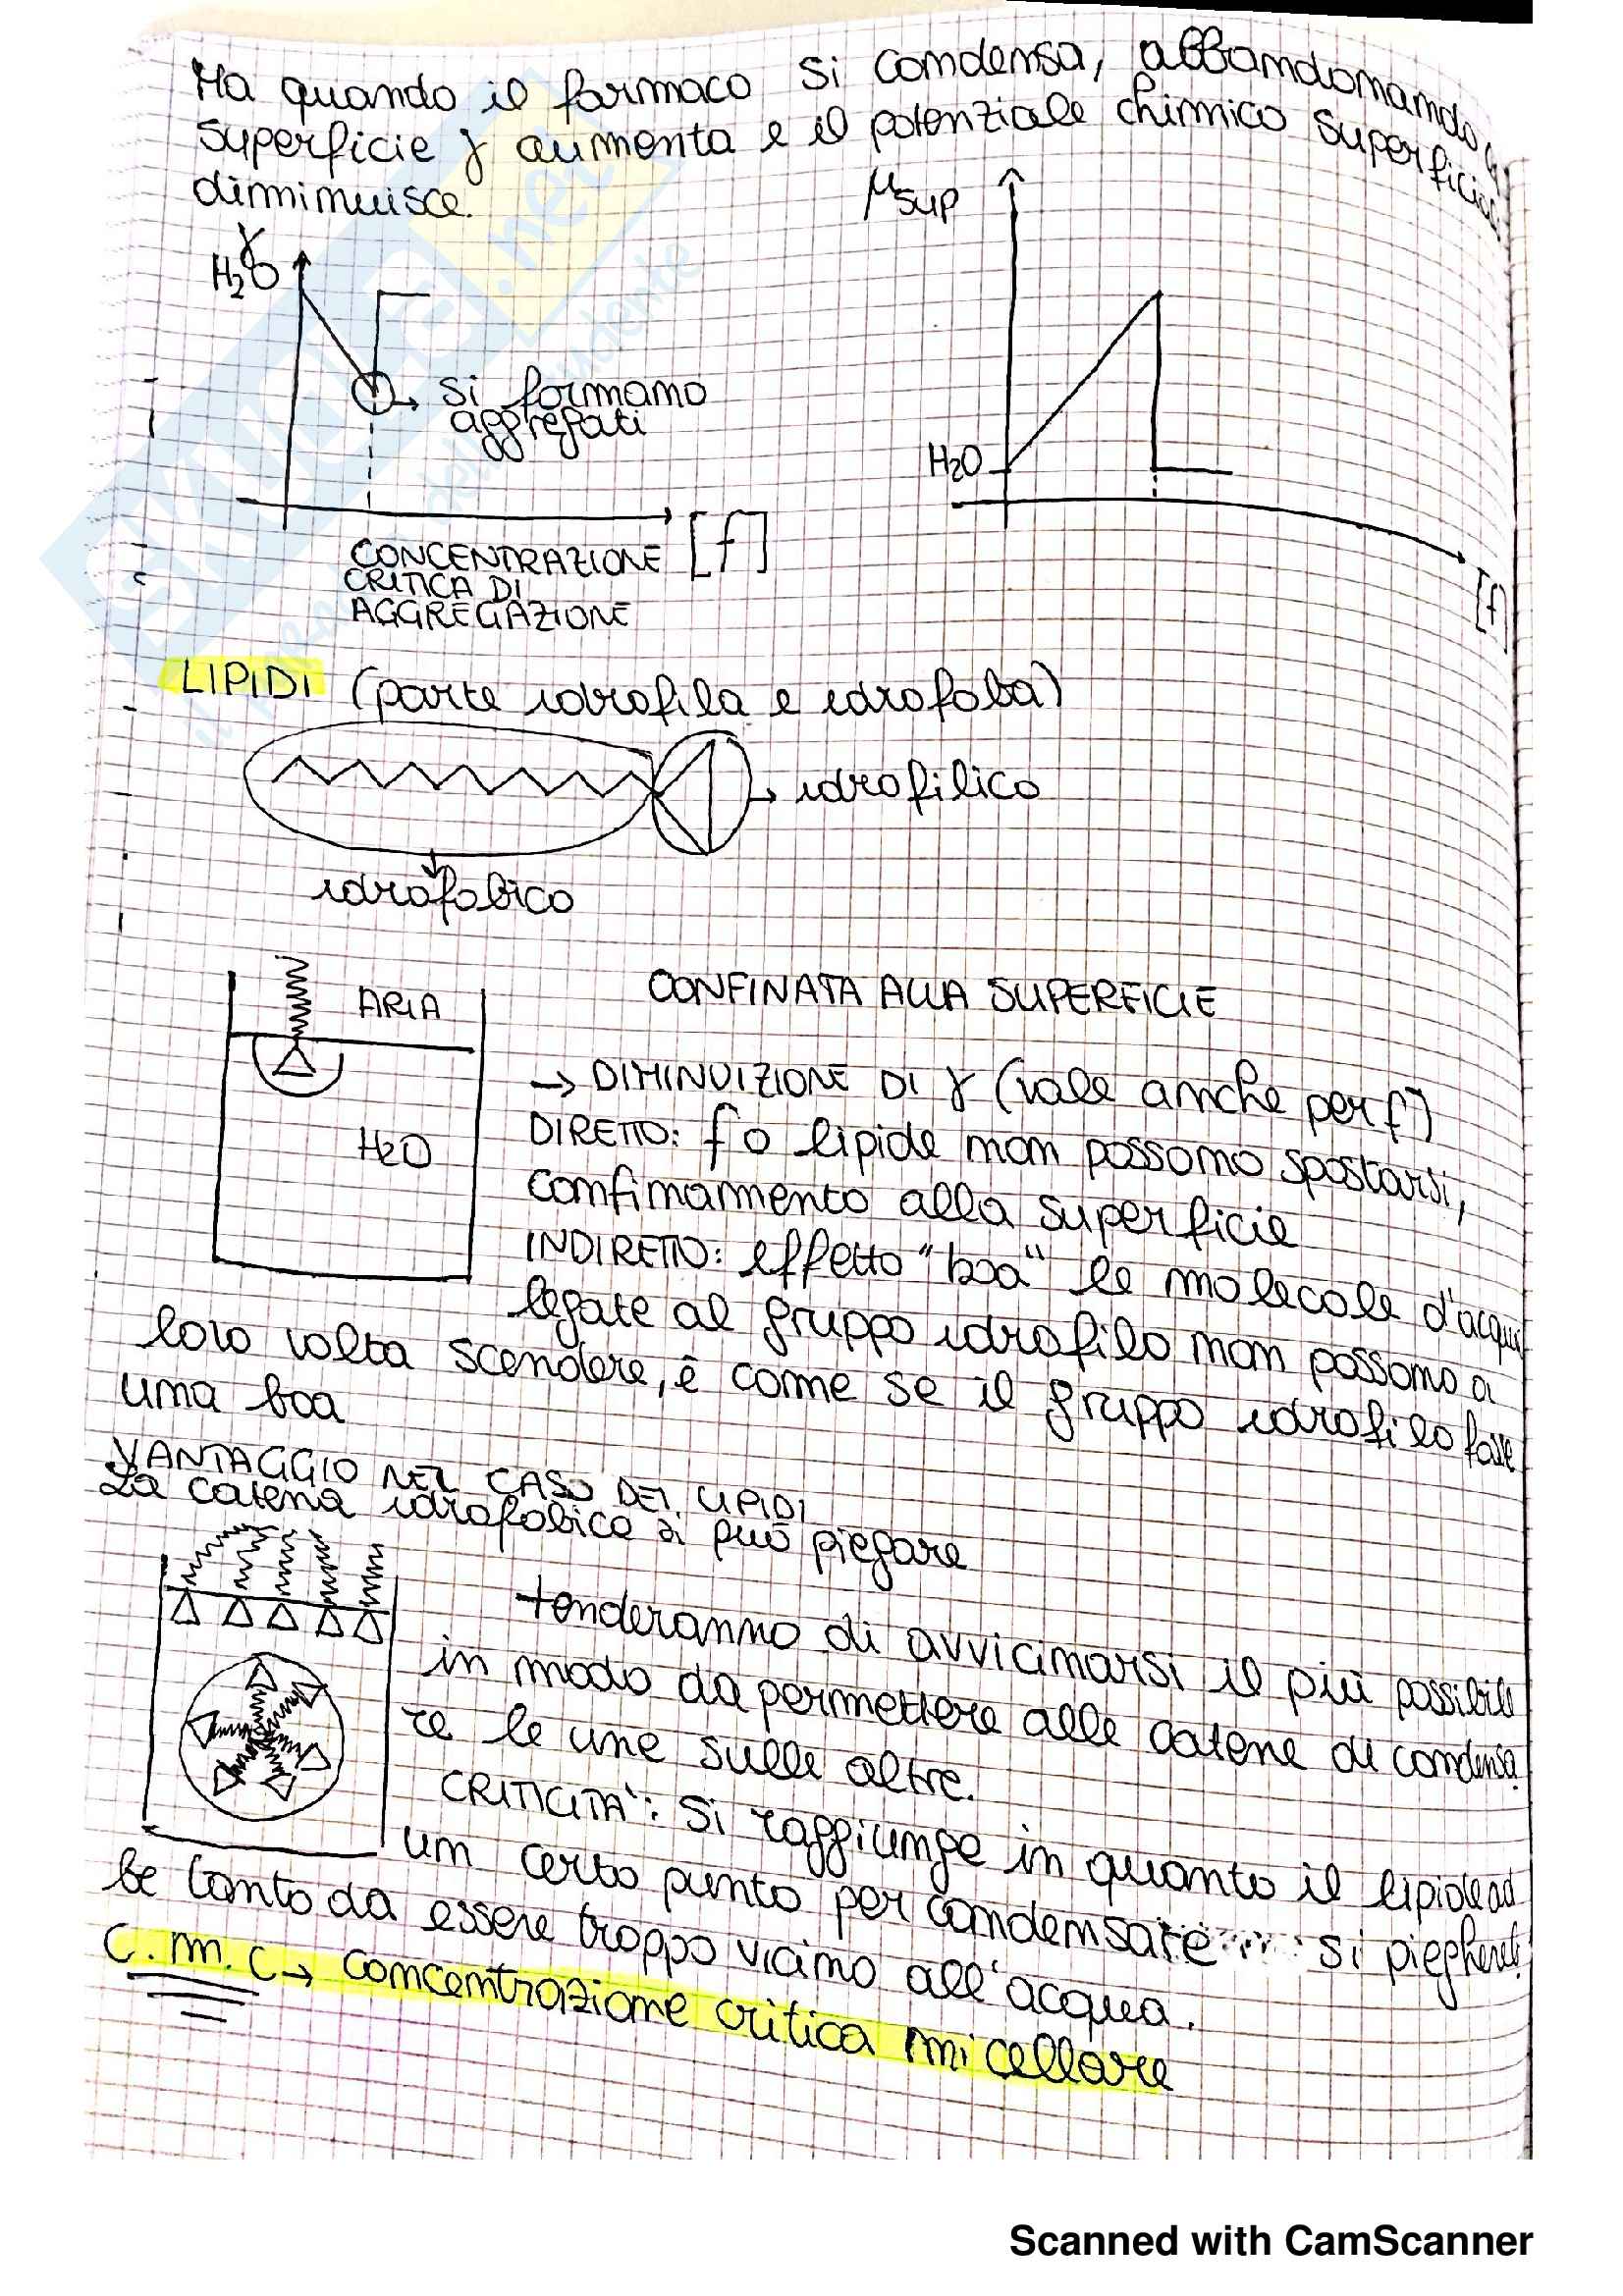 Ma quando il farmaco si condensa, abbandonando
superficie γ aumenta e il potenziale chimico superficiale
diminuisce.
γ
H₂O
si formano
aggregati
[f]
CONCENTRAZIONE
CRITICA DI
AGGREGAZIONE
μSUP
H₂O
[f]
LIPIDI (parte idrofila e idrofoba)
idrofilico
idrofobico
ARIA
H₂O
CONFINATA ALLA SUPERFICIE
→ DIMINUIZIONE DI γ (vale anche per f)
DIRETTO: f o lipide non possono spostarsi,
confinamento alla superficie
INDIRETTO: effetto "boa" le molecole d'acqua
legate al gruppo idrofilo non possono a
loro volta scendere, è come se il gruppo idrofilo fosse
una boa
VANTAGGIO NEL CASO DEI LIPIDI
La catena idrofobica si può piegare
tenderanno di avvicinarsi il più possibile
in modo da permettere alle catene di condensa
re le une sulle altre.
CRITICITA': si raggiunge in quanto il lipide ad
un certo punto per condensare si pieghereb
be tanto da essere troppo vicino all'acqua.
C.m.C → concentrazione critica micellare
SKUOLA.net
Scanned with CamScanner